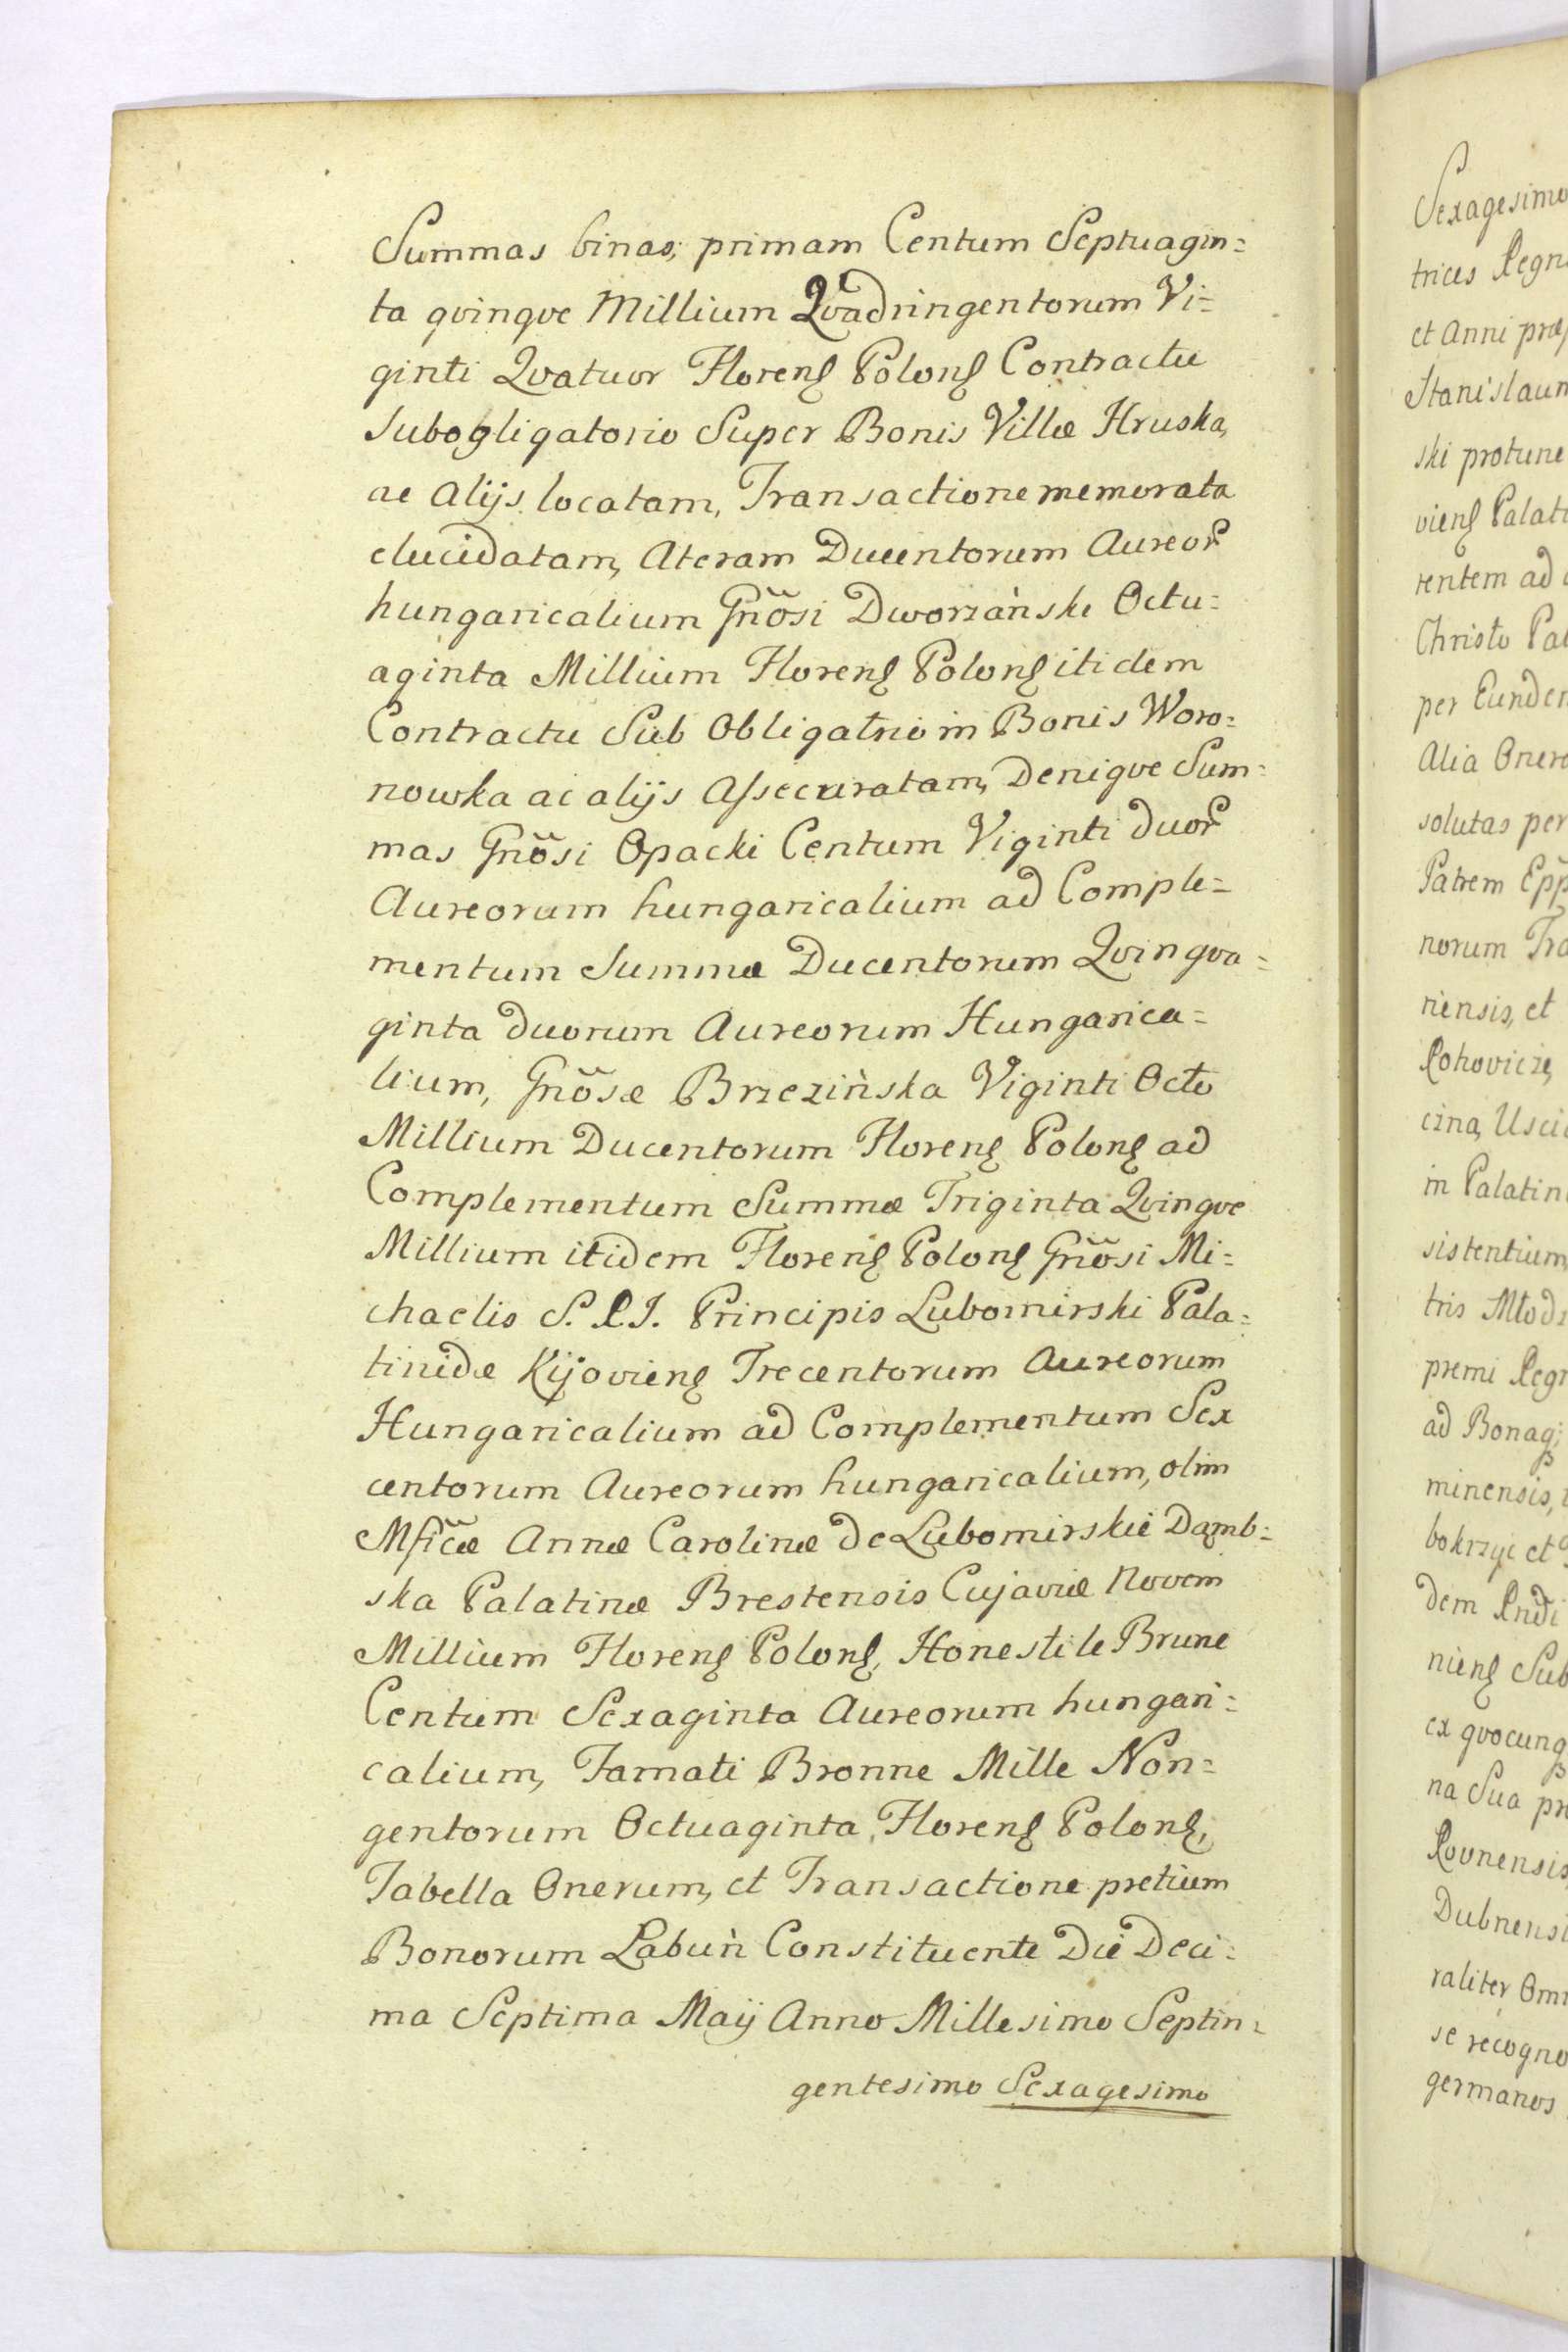 Summas binas; primam Centum Septuagin=
ta qvinqve Millium Qvadringentorum Vi=
ginti Qvatuor Florenꝭ Polonꝭ Contractu
Subogligatorio Super Bonis Villæ Hruska,
ac Alijs locatam, Transactione memorata
elucidatam, Ateram Ducentorum Aureorꝝ
hungaricalium Gñosi Dworzański Octu=
aginta Millium Florenꝭ Polonꝭ itidem
Contractu Sub Obligatrio in Bonis Woro=
nowka ac alijs Assecuratam, Deniqve Sum=
mas Gñosi Opacki Centum Viginti duorꝝ
Aureorum hungaricalium ad Comple=
mentum Summæ Ducentorum Qvinqva=
ginta duorum Aureorum Hungarica=
lium, Gñosæ Brzezińska Viginti Octo
Millium Ducentorum Florenꝭ Polonꝭ ad
Complementum Summæ Triginta Qvinqve
Millium itidem Florenꝭ Polonꝭ Gñosi Mi=
chaelis S. R. I. Principis Lubomirski Pala=
tinidæ Kijovienꝭ Trecentorum Aureorum
Hungaricalium ad Complementum Sex
centorum Aureorum hungaricalium, olim
Mficæ Annæ Carolinæ de Lubomirskie Dąmb=
ska Palatinæ Brestensis Cujaviæ Novem
Millium Florenꝭ Polonꝭ, Honesti le Brune
Centum Sexaginta Aureorum hungari=
calium, Famati Bronne Mille Non=
gentorum Octuaginta, Florenꝭ Polonꝭ,
Tabella Onerum, et Transactione pretium
Bonorum Łabuń Constituente Die Deci=
ma Septima Maij Anno Millesimo Septin=
gentesimo Sexagesimo
Sexagesimo
trices Regn
et Anni præ
Stanislaum
ski protunc
vienꝭ Palat
rentem ad
Christo Pat
per Eundem
Alia Onera
solutas per
Patrem Epp
norum Tra
niensis, et
Rohovicze,
czna, Uscie
in Palatin
sistentium,
tris Młodz
premi Regn
ad Bonaq;
minensis,
bokrzyc et
dem Rndi
nienꝭ Sub
ex qvocunq
na Sua pr
Rovnensis
Dubnensi
raliter Omn
se recogno
germanos